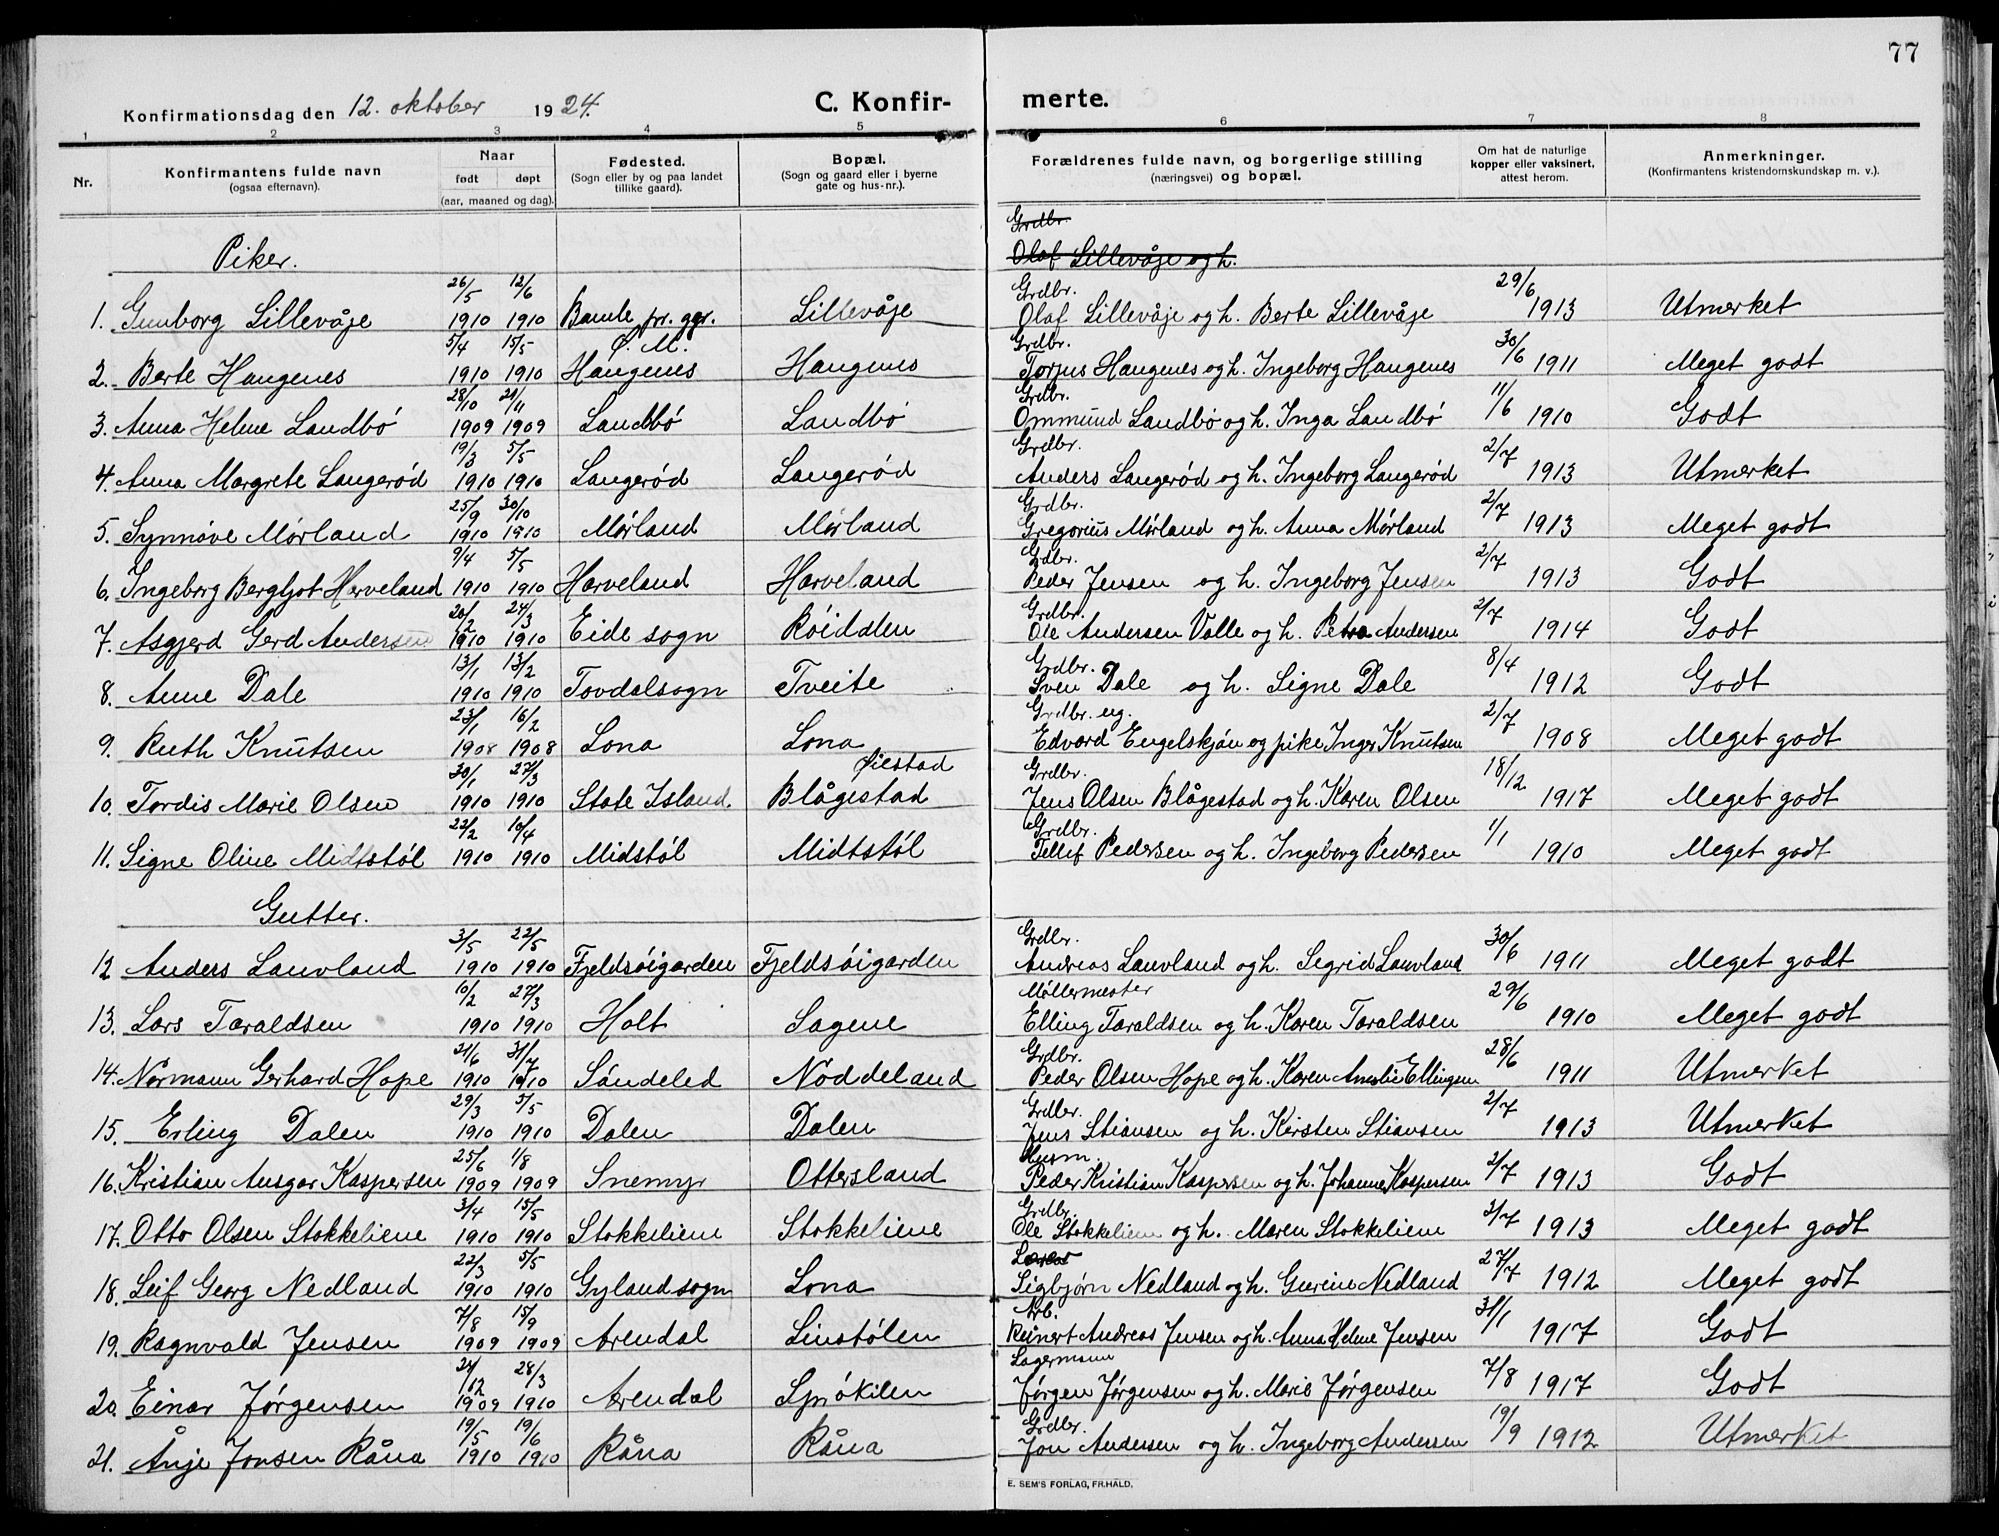 77
Konfirmationsdag den 12. oktober 1924. C. Konfir- merte.
1 2 3 4 5 6 7 8
Nr. Konfirmantens fulde navn Naar Fødested. Bopæl. Forældrenes fulde navn, og borgerlige stilling Om hat de naturlige Anmerkninger.
(ogsaa efternavn). født døpt (Sogn eller by og paa landet (Sogn og gaard eller i byerne (næringsvei) og bopæl. kopper eller vaksinert, (Konfirmantens kristendomskundskap m. v.).
(aar, maaned og dag). tillike gaard). gate og hus-nr.). attest herom.
Grdbr.
Piker. Olaf Lillevåje og h.
26/5 12/6 Grdbr. 29/6
1. Gunborg Lillevåje 1910 1910 Bamle pr. ggr. Lillevåje Olaf Lillevåje og h. Berte Lillevåje 1913 Utmerket
5/4 15/5 Ø. M. Grdbr. 30/6
2. Berte Haugenes 1910 1910 Haugenes Haugenes Torjus Haugenes og h. Ingeborg Haugenes 1911 Meget godt
28/10 21/11 Grdbr. 11/6
3. Anna Helene Landbø 1909 1909 Landbø Landbø Ommund Landbø og h. Inga Landbø 1910 Godt
19/3 5/5 Grdbr. 2/7
4. Anna Margrete Langerød 1910 1910 Langerød Langerød Anders Langerød og h. Ingeborg Langerød 1913 Utmerket
25/9 30/10 Grdbr. 2/7
5. Synnøve Mørland 1910 1910 Mørland Mørland Gregorius Mørland og h. Anna Mørland 1913 Meget godt
9/4 5/5 Grdbr. 2/7
6. Ingeborg Bergljot Herveland 1910 1910 Harveland Harveland Peder Jensen og h. Ingeborg Jensen 1913 Godt
20/2 24/3 Grdbr. 2/7
7. Asgjerd Gerd Andersen 1910 1910 Eide sogn Røiddlen Ole Andersen Valle og h. Petra Andersen 1914 Godt
13/1 13/2 Grdbr. 8/4
8. Anne Dale 1910 1910 Tovdalsogn Tveite Sven Dale og h. Signe Dale 1912 Godt
23/1 16/2 Grdbr. ug. 2/7
9. Ruth Knutsen 1908 1908 Lona Lona Edvard Engelskjøn og pike Inger Knutsen 1908 Meget godt
30/1 27/3 Øiestad Grdbr. 18/12
10. Tordis Marie Olsen 1910 1910 State Island Blågestad Jens Olsen Blågestad og h. Karen Olsen 1917 Meget godt
22/2 10/4 Grdbr. 1/1
11. Signe Oline Midtstøl 1910 1910 Midstøl Midtstøl Tellef Pedersen og h. Ingeborg Pedersen 1910 Meget godt
Gutter.
3/5 22/5 Grdbr. 30/6
12 Anders Lauvland 1910 1910 Fjeldsøigarden Fjeldsøigarden Andreas Lauvland og h. Segrid Lauvland 1911 Meget godt
10/2 27/3 Møllermester 29/6
13. Lars Taraldsen 1910 1910 Holt Sagene Elling Taraldsen og h. Karen Taraldsen 1910 Meget godt
21/6 31/7 Grdbr. 28/6
14. Normann Gerhard Hope 1910 1910 Søndeled Noddeland Peder Olsen Hope og h. Karen Amalie Ellingsen 1911 Utmerket
29/3 5/5 Grdbr. 2/7
15. Erling Dalen 1910 1910 Dalen Dalen Jens Stiansen og h. Kirsten Stiansen 1913 Utmerket
25/6 1/8 Husm. 2/7
16. Kristian Ansgar Kaspersen 1909 1909 Snemyr Ottersland Peder Kristian Kaspersen og h. Johanne Kaspersen 1913 Godt
3/4 15/5 Grdbr. 2/7
17. Otto Olsen Stokkeliene 1910 1910 Stokkeliene Stokkeliene Ole Stokkeliene og h. Maren Stokkeliene 1913 Meget godt
22/3 5/5 27/7
18. Leif Georg Nedland 1910 1910 Gyland sogn Lona Sigbjørn Nedland og h. Gurine Nedland 1912 Meget godt
7/8 15/9 Arb. 31/1
19. Ragnvald Jensen 1909 1909 Arendal Linstølen Reinert Andreas Jensen og h. Anna Helene Jensen 1917 Godt
24/12 28/3 Lagermann 7/8
20. Einar Jørgensen 1909 1910 Arendal Sprøkilen Jørgen Jørgensen og h. Marie Jørgensen 1917 Godt
19/5 19/6 Grdbr. 19/9
21. Ånje Jonsen Råna 1910 1910 Råna Råna Jon Andersen og h. Ingeborg Andersen 1912 Utmerket
E. SEM'S FORLAG, FR.HALD.